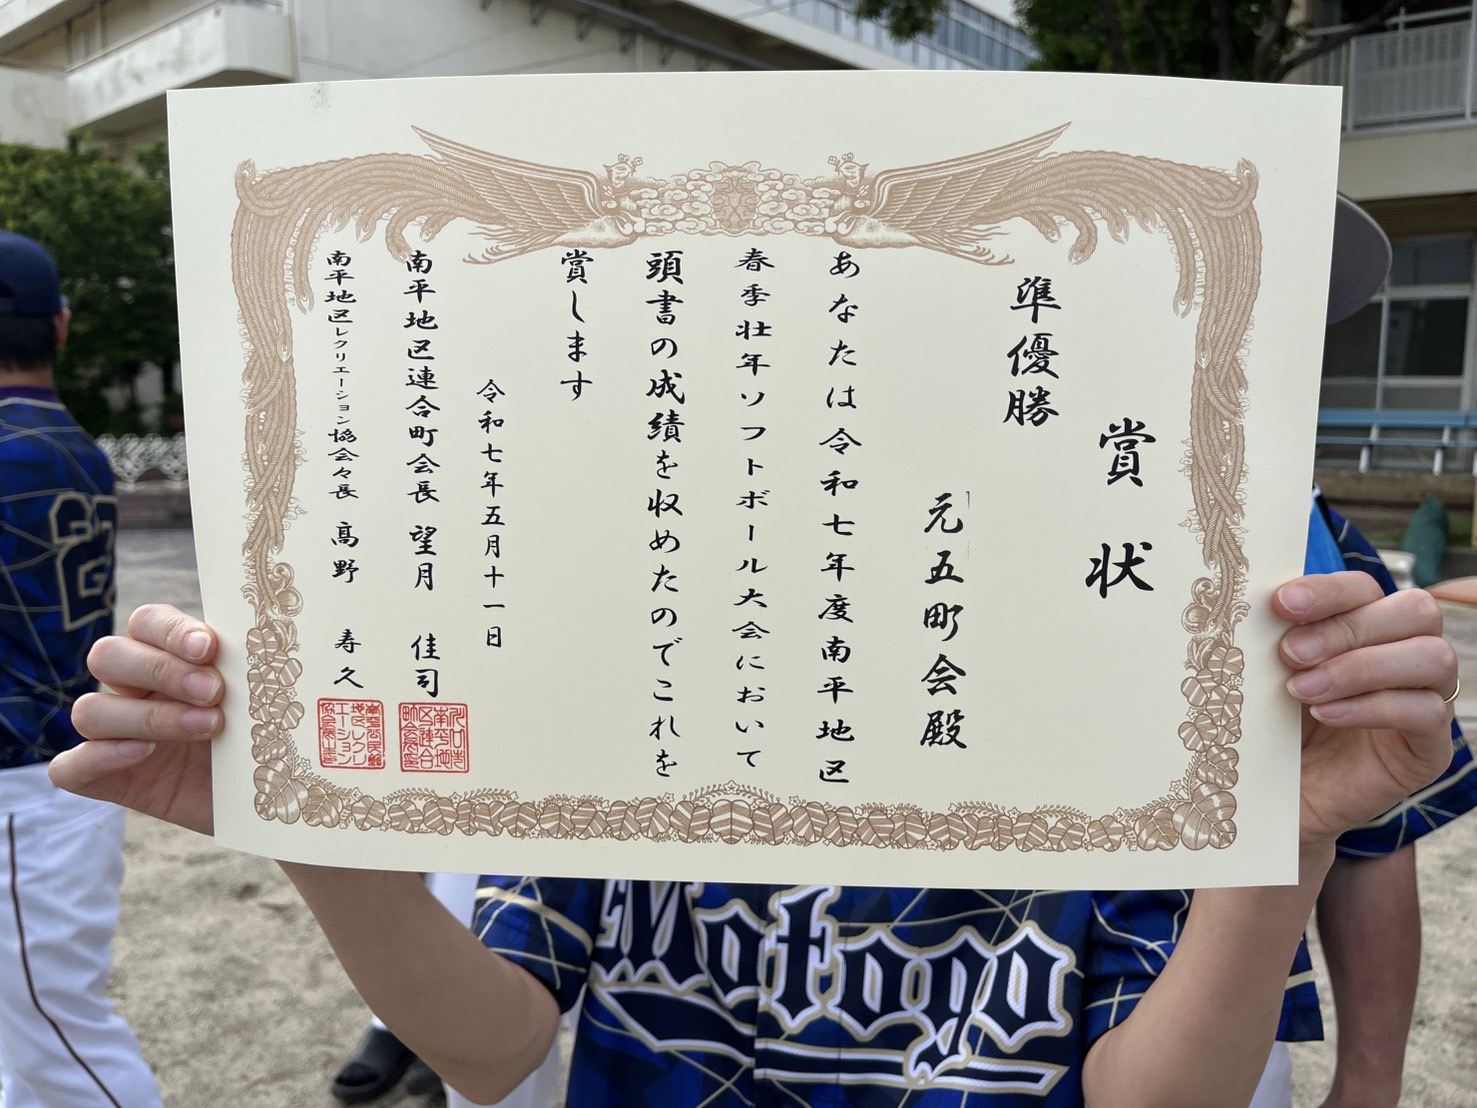 賞状
準優勝
元五町会殿
あなたは令和七年度南平地区
春季壮年ソフトボール大会において
頭書の成績を収めたのでこれを
賞します
令和七年五月十一日
南平地区連合町会長 望月 佳司
南平地区レクリエーション協会々長 髙野 寿久
Motogo